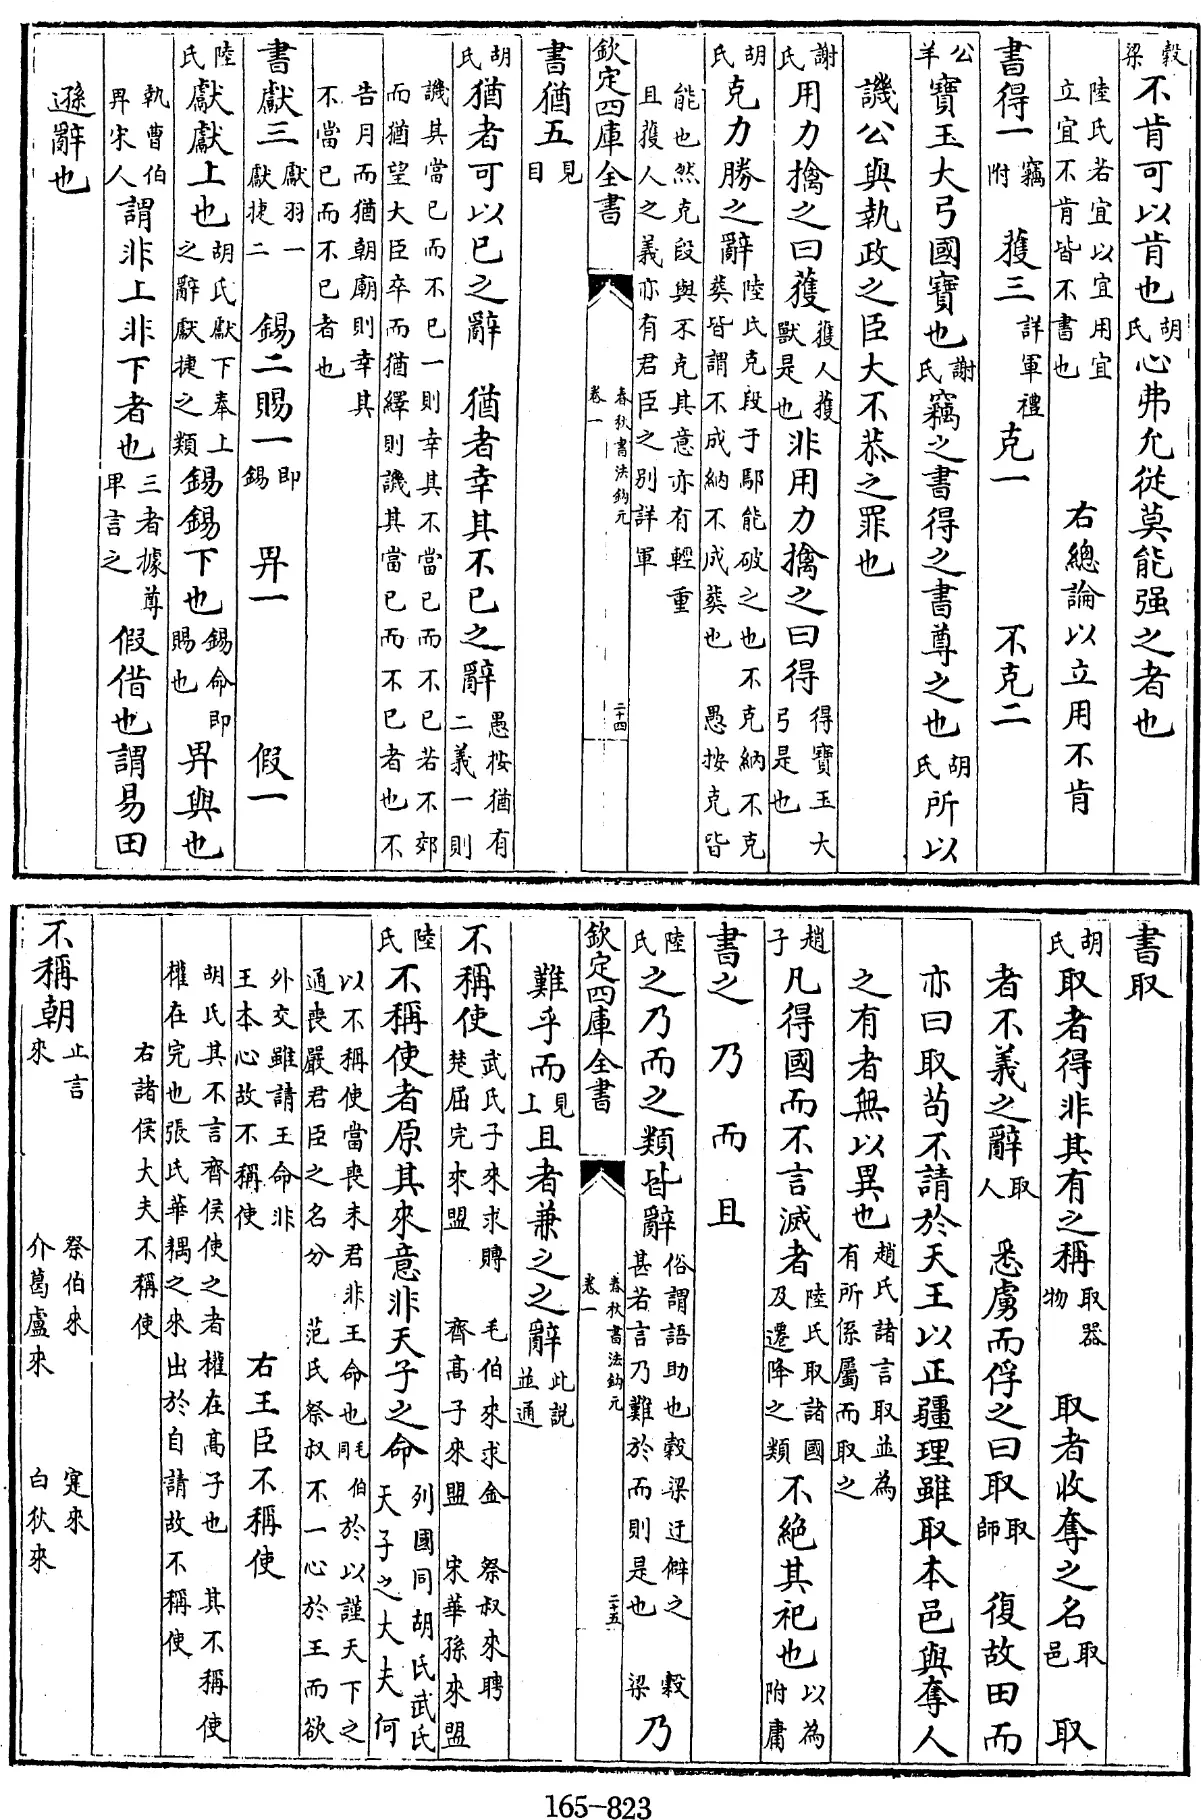 穀梁不肯可以肯也胡氏心弗允從莫能强之者也
陸氏若宜以宜用宜立宜不肯皆不書也　右總論以立用不肯
書得一竊附　獲三詳軍禮　克一　不克二
公羊寶玉大弓國寶也謝氏竊之書得之書尊之也胡氏所以
譏公與執政之臣大不恭之罪也
謝氏用力擒之曰獲獲人獲獸是也非用力擒之曰得得寶玉大弓是也
胡氏克力勝之辭陸氏克段于鄢能破之也不克納不克葬皆謂不成納不成葬也　愚按克皆
能也然克段與不克其意亦有輕重且獲人之義亦有君臣之别詳軍
欽定四庫全書　春秋書法鈎元　卷一　二十四
書猶五見目
胡氏猶者可以已之辭　猶者幸其不已之辭愚按猶有二義一則
譏其當已而不已一則幸其不當已而不已若不郊而猶望大臣卒而猶繹則譏其當已而不已者也不
告月而猶朝廟則幸其不當已而不已者也
書獻三獻羽一獻捷二　錫二賜一即錫　畀一　假一
陸氏獻獻上也胡氏獻下奉上之辭獻捷之類錫錫下也錫命即賜也畀與也
執曹伯畀宋人謂非上非下者也三者據尊卑言之　假借也謂易田
遜辭也
書取
胡氏取者得非其有之稱取器物　取者收奪之名取邑　取
者不義之辭取人　悉虜而俘之曰取取師　復故田而
亦曰取苟不請於天王以正疆理雖取本邑與奪人
之有者無以異也趙氏諸言取並為有所係屬而取之
趙子凡得國而不言滅者陸氏取諸國及遷降之類不絕其祀也以為附庸
書之　乃　而　且
陸氏之乃而之類皆辭俗謂語助也穀梁迂僻之甚若言乃難於而則是也　穀梁乃
欽定四庫全書　春秋書法鈎元　卷一　二十五
難乎而見上且者兼之之辭此説並通
不稱使武氏子來求賻　毛伯來求金　祭叔來聘　楚屈完來盟　齊高子來盟　宋華孫來盟
陸氏不稱使者原其來意非天子之命列國同胡氏武氏天子之大夫何
以不稱使當喪未君非王命也毛伯於以謹天下之通喪嚴君臣之名分同　范氏祭叔不一心於王而欲
外交雖請王命非王本心故不稱使　右王臣不稱使
胡氏其不言齊侯使之者權在高子也　其不稱使權在完也張氏華耦之來出於自請故不稱使
右諸侯大夫不稱使
不稱朝止言來　祭伯來　寔來　介葛盧來　白狄來
165-823